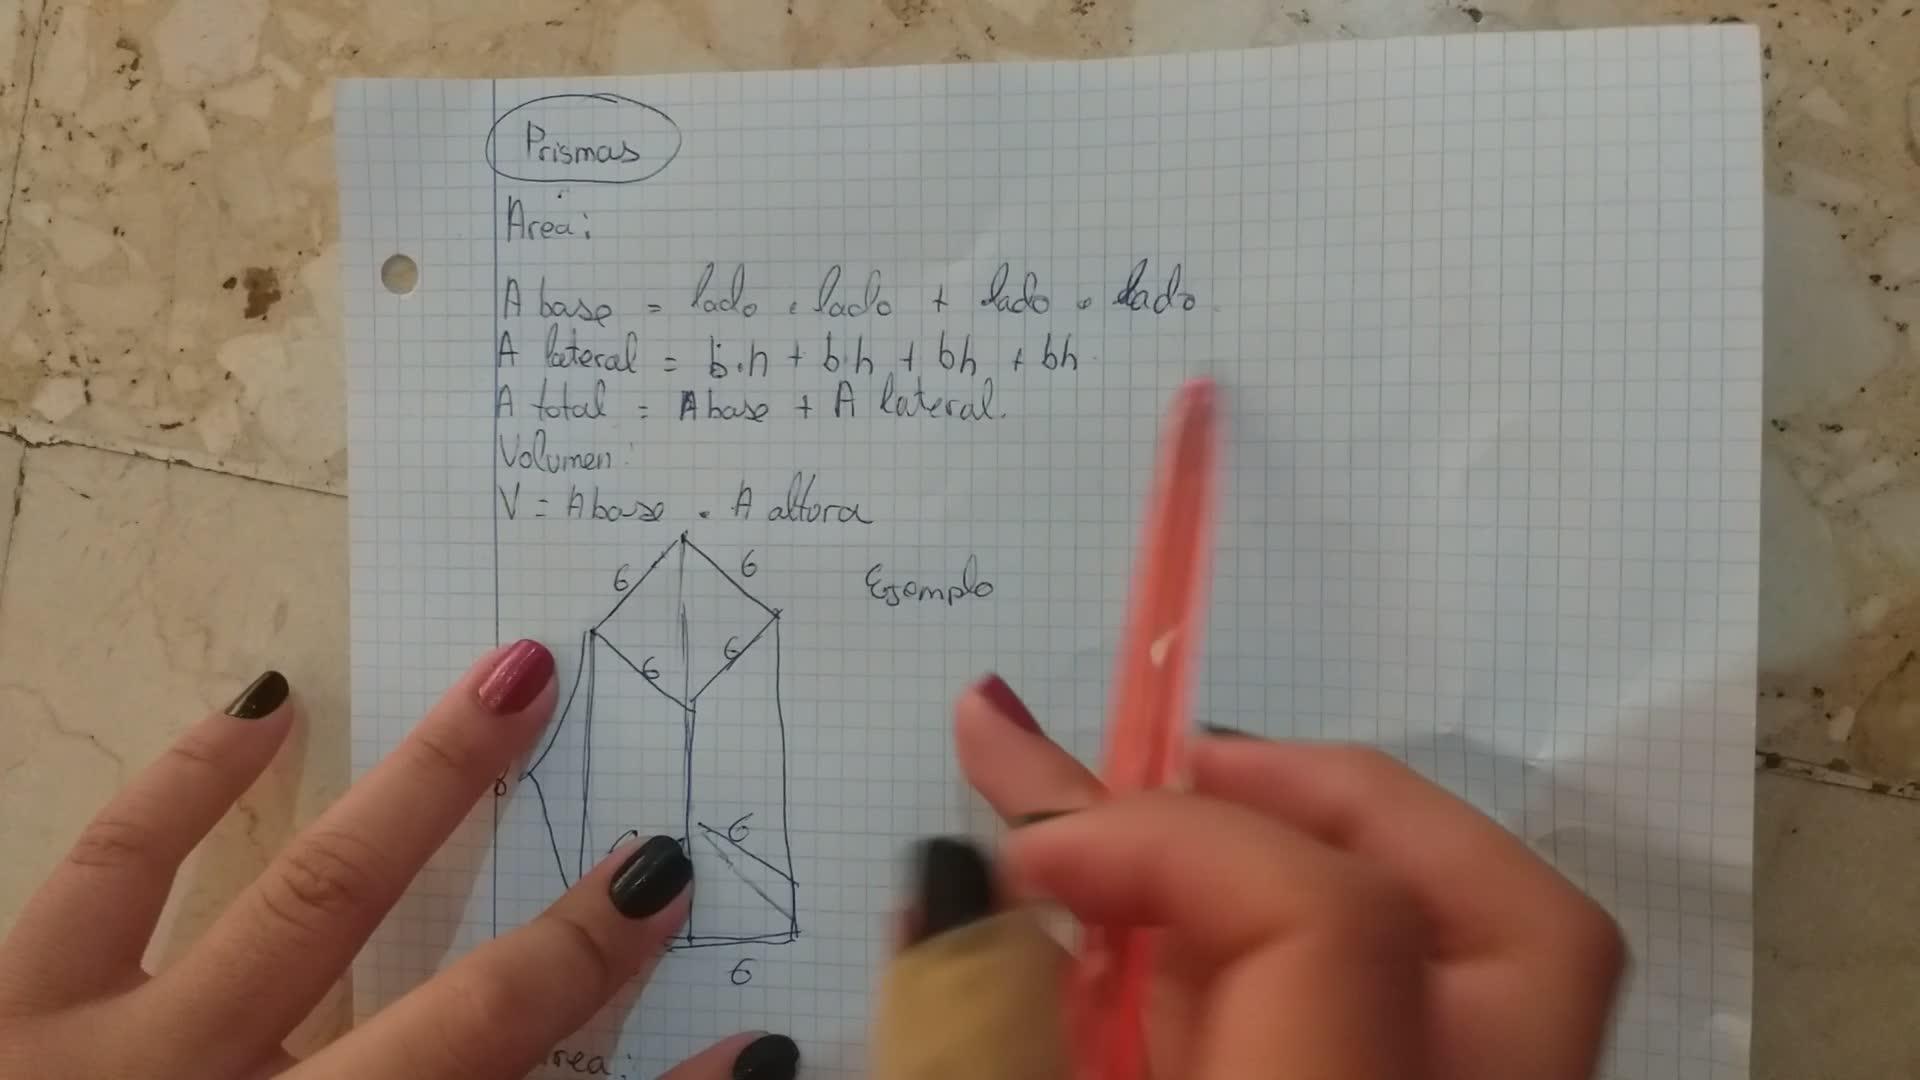 Prismas
Area:
A base = lado · lado + lado · lado
A lateral = b·h + b·h + bh + bh
A total = A base + A lateral.
Volumen:
V = A base · A altura
6 6
Ejemplo
6 6
6
6